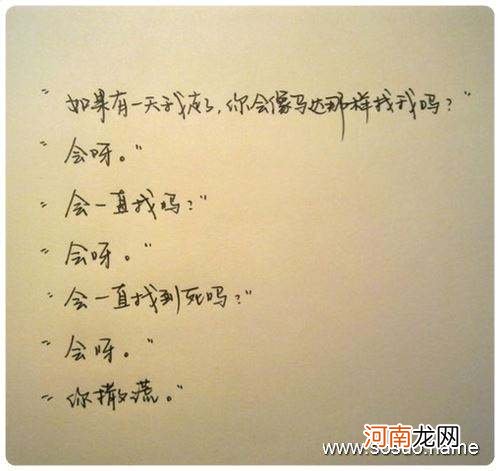 "如果有一天我走了，你会像马达那样找我吗？"
"会呀。"
"会一直找吗？"
"会呀。"
"会一直找到死吗？"
"会呀。"
"你撒谎。"
河南龙网
www.sosuo.name